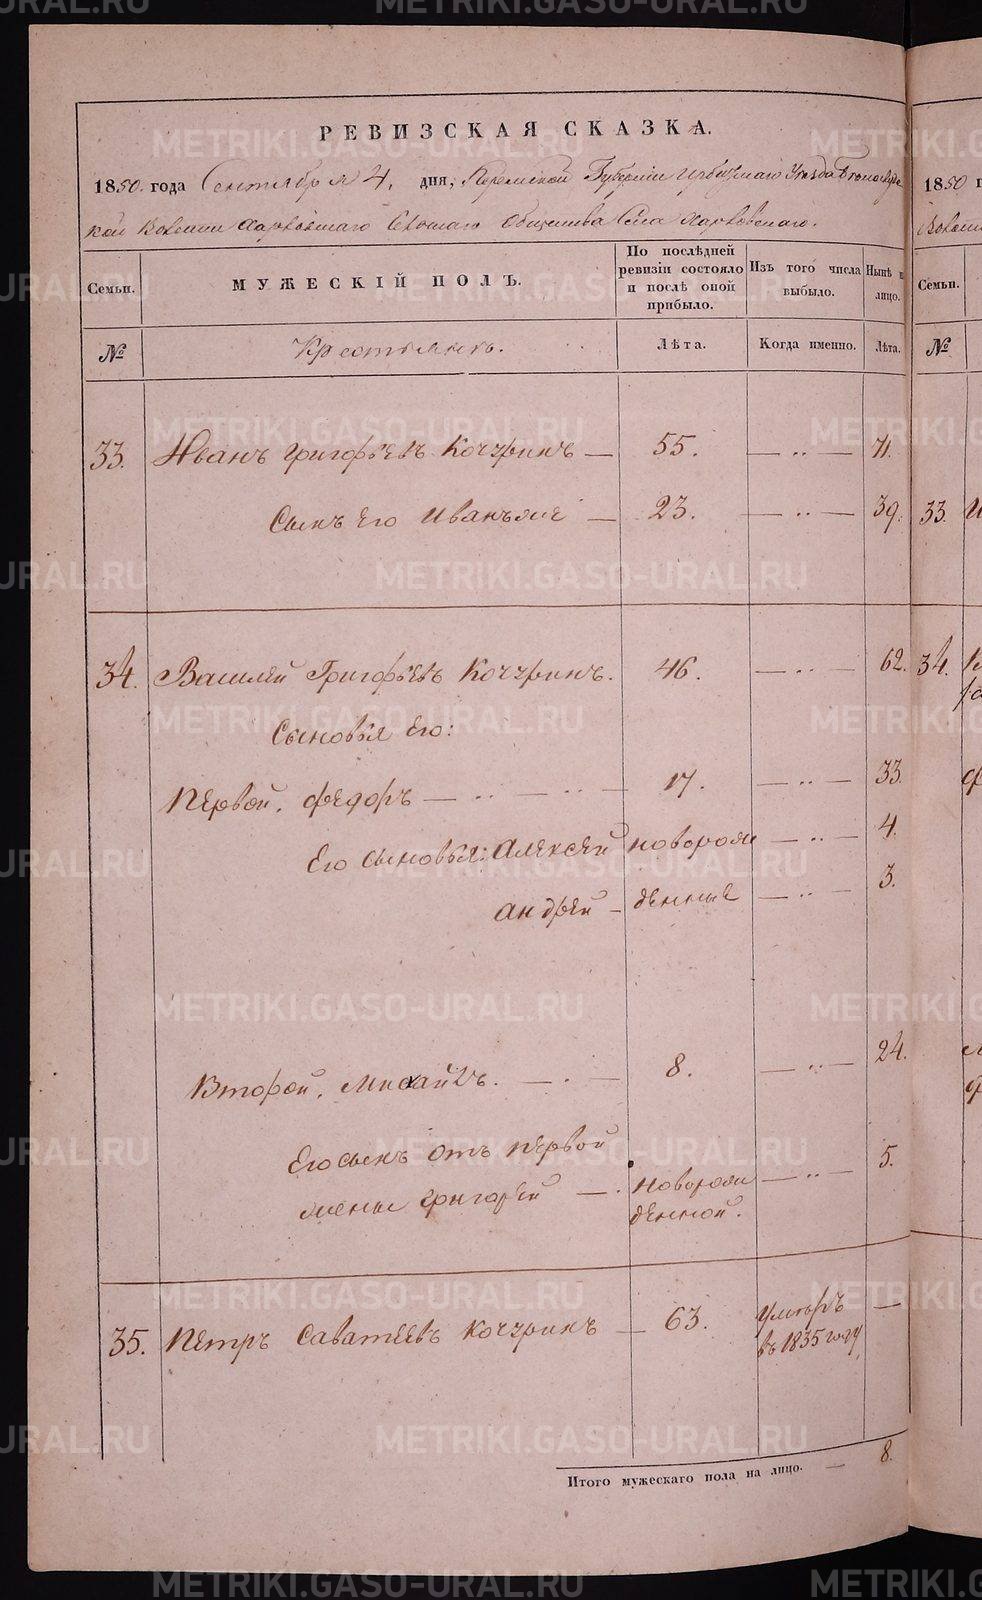 РЕВИЗСКАЯ СКАЗКА.
1850. года Сентября 4, дня, Пермской Губернiи Ирбитскаго Уѣзда
кой Волости Харловскаго Сельскаго Общества Села Харловскаго.
Семьи.
МУЖЕСКIЙ ПОЛЪ.
По послѣдней ревизiи состояло и послѣ оной прибыло.
Изъ того числа выбыло.
Нынѣ на лицо.
№
Крестьянъ.
Лѣта.
Когда именно.
Лѣта.
33. Иванъ Григорьевъ Кочуринъ — 55. — ·· — 71.
Сынъ Его Иванъ же — 23. — ·· — 39.
34. Василей Григорьевъ Кочуринъ. 46. — ·· — 62.
Сыновья Его:
Первой, Федоръ — ·· — ·· — 17. — ·· — 33.
Его сыновья: Алексей новорож — ·· — 4.
Андрей – денные — ·· — 3.
Второй, Михайлъ. — · — 8. — ·· — 24.
Его сынъ отъ первой
жены Григорей — · новорож — ·· — 5.
денной.
35. Петръ Саватеевъ Кочуринъ — 63. Умеръ —
въ 1835 году
Итого мужескаго пола на лицо. — 8.
1850 г
Волости
Семьи.
№
33.
34.
METRIKI.GASO-URAL.RU